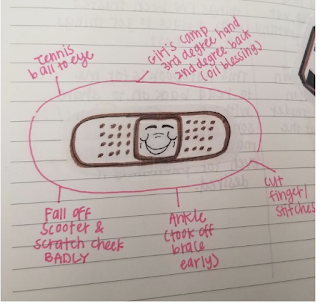 Tennis
ball to eye
Girl's camp
3rd degree hand
2nd degree back
(oil blessing)
Fall off
scooter &
scratch cheek
BADLY
Ankle
(took off
brace
early)
cut
finger/
stitches